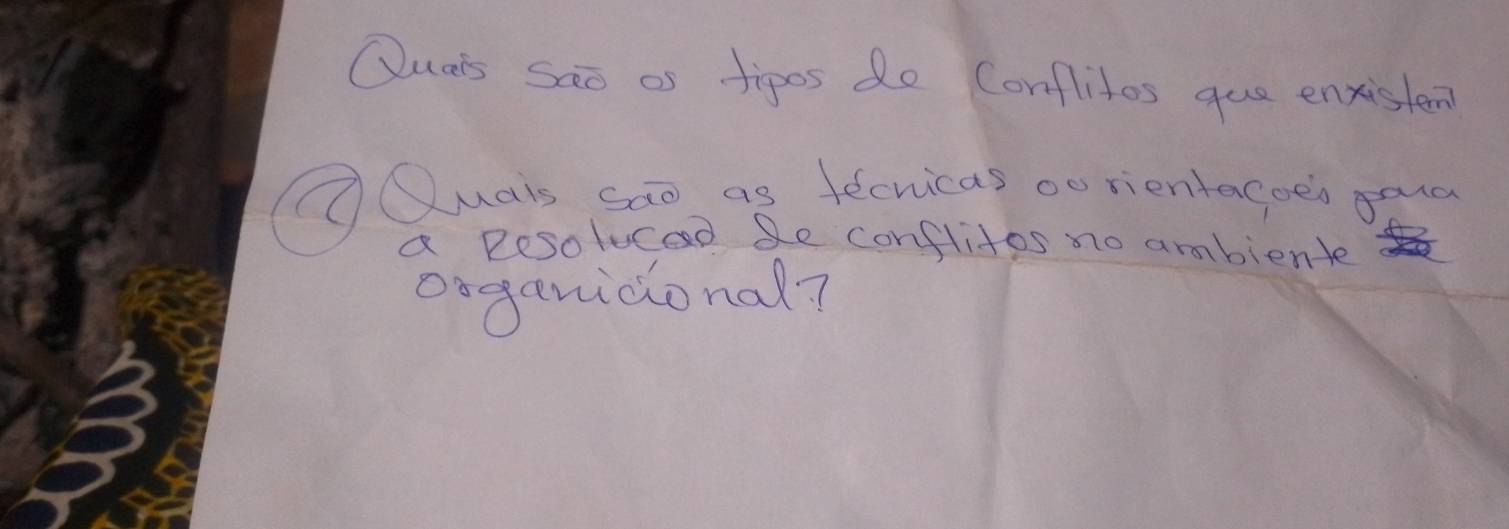 Quais são os tipos de Conflitos que enxistem?
② Quais são as técnicas oorientações para
a Resolução de conflitos no ambiente
organicional?